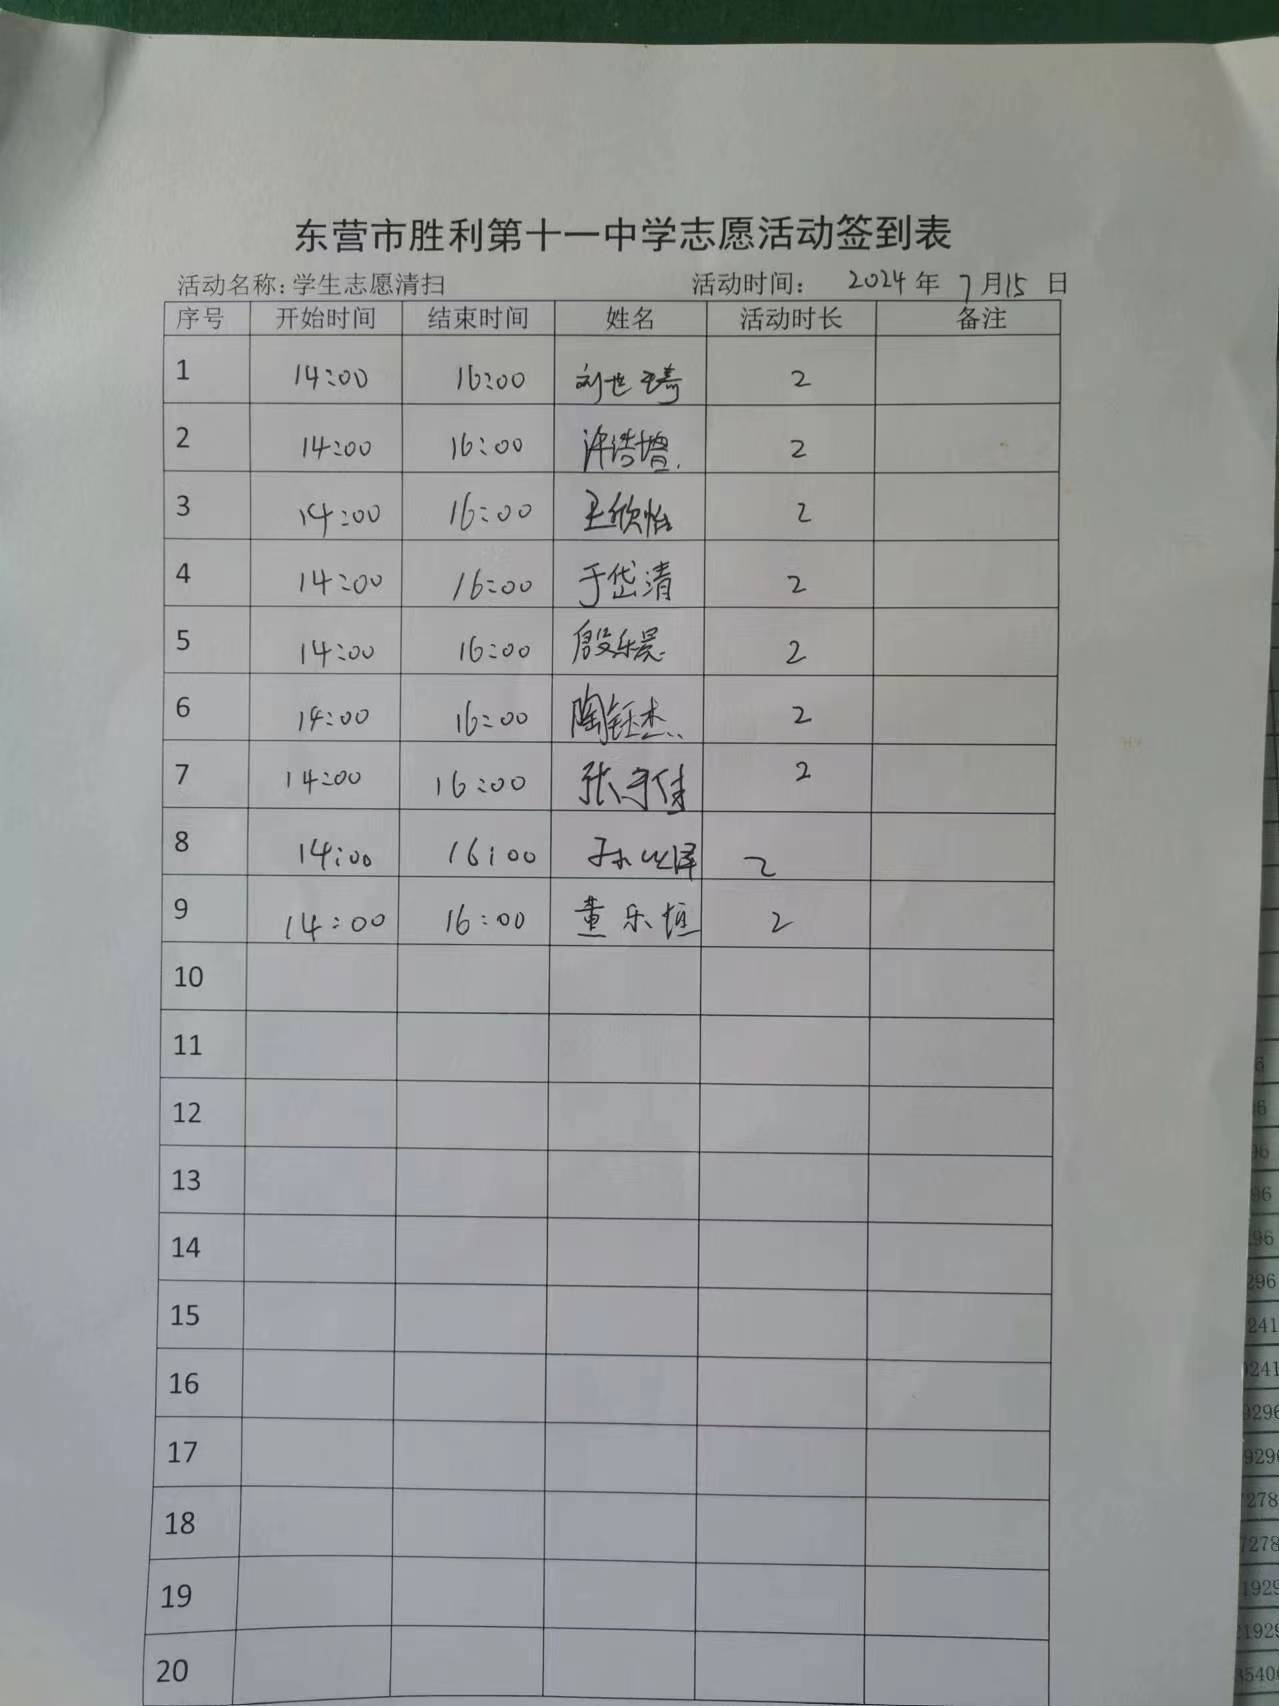 东营市胜利第十一中学志愿活动签到表
活动名称:学生志愿清扫 活动时间: 2024 年 7 月 15 日
序号 开始时间 结束时间 姓名 活动时长 备注
1 14:00 16:00 刘世琦 2
2 14:00 16:00 许浩增 2
3 14:00 16:00 王欣怡 2
4 14:00 16:00 于岱清 2
5 14:00 16:00 殷乐晨 2
6 14:00 16:00 陶钰杰 2
7 14:00 16:00 张守佳 2
8 14:00 16:00 孙 泽 2
9 14:00 16:00 董乐恒 2
10
11
12
13
14
15
16
17
18
19
20
6
96
96
296
241
0241
9296
929
278
7278
1929
21929
3540